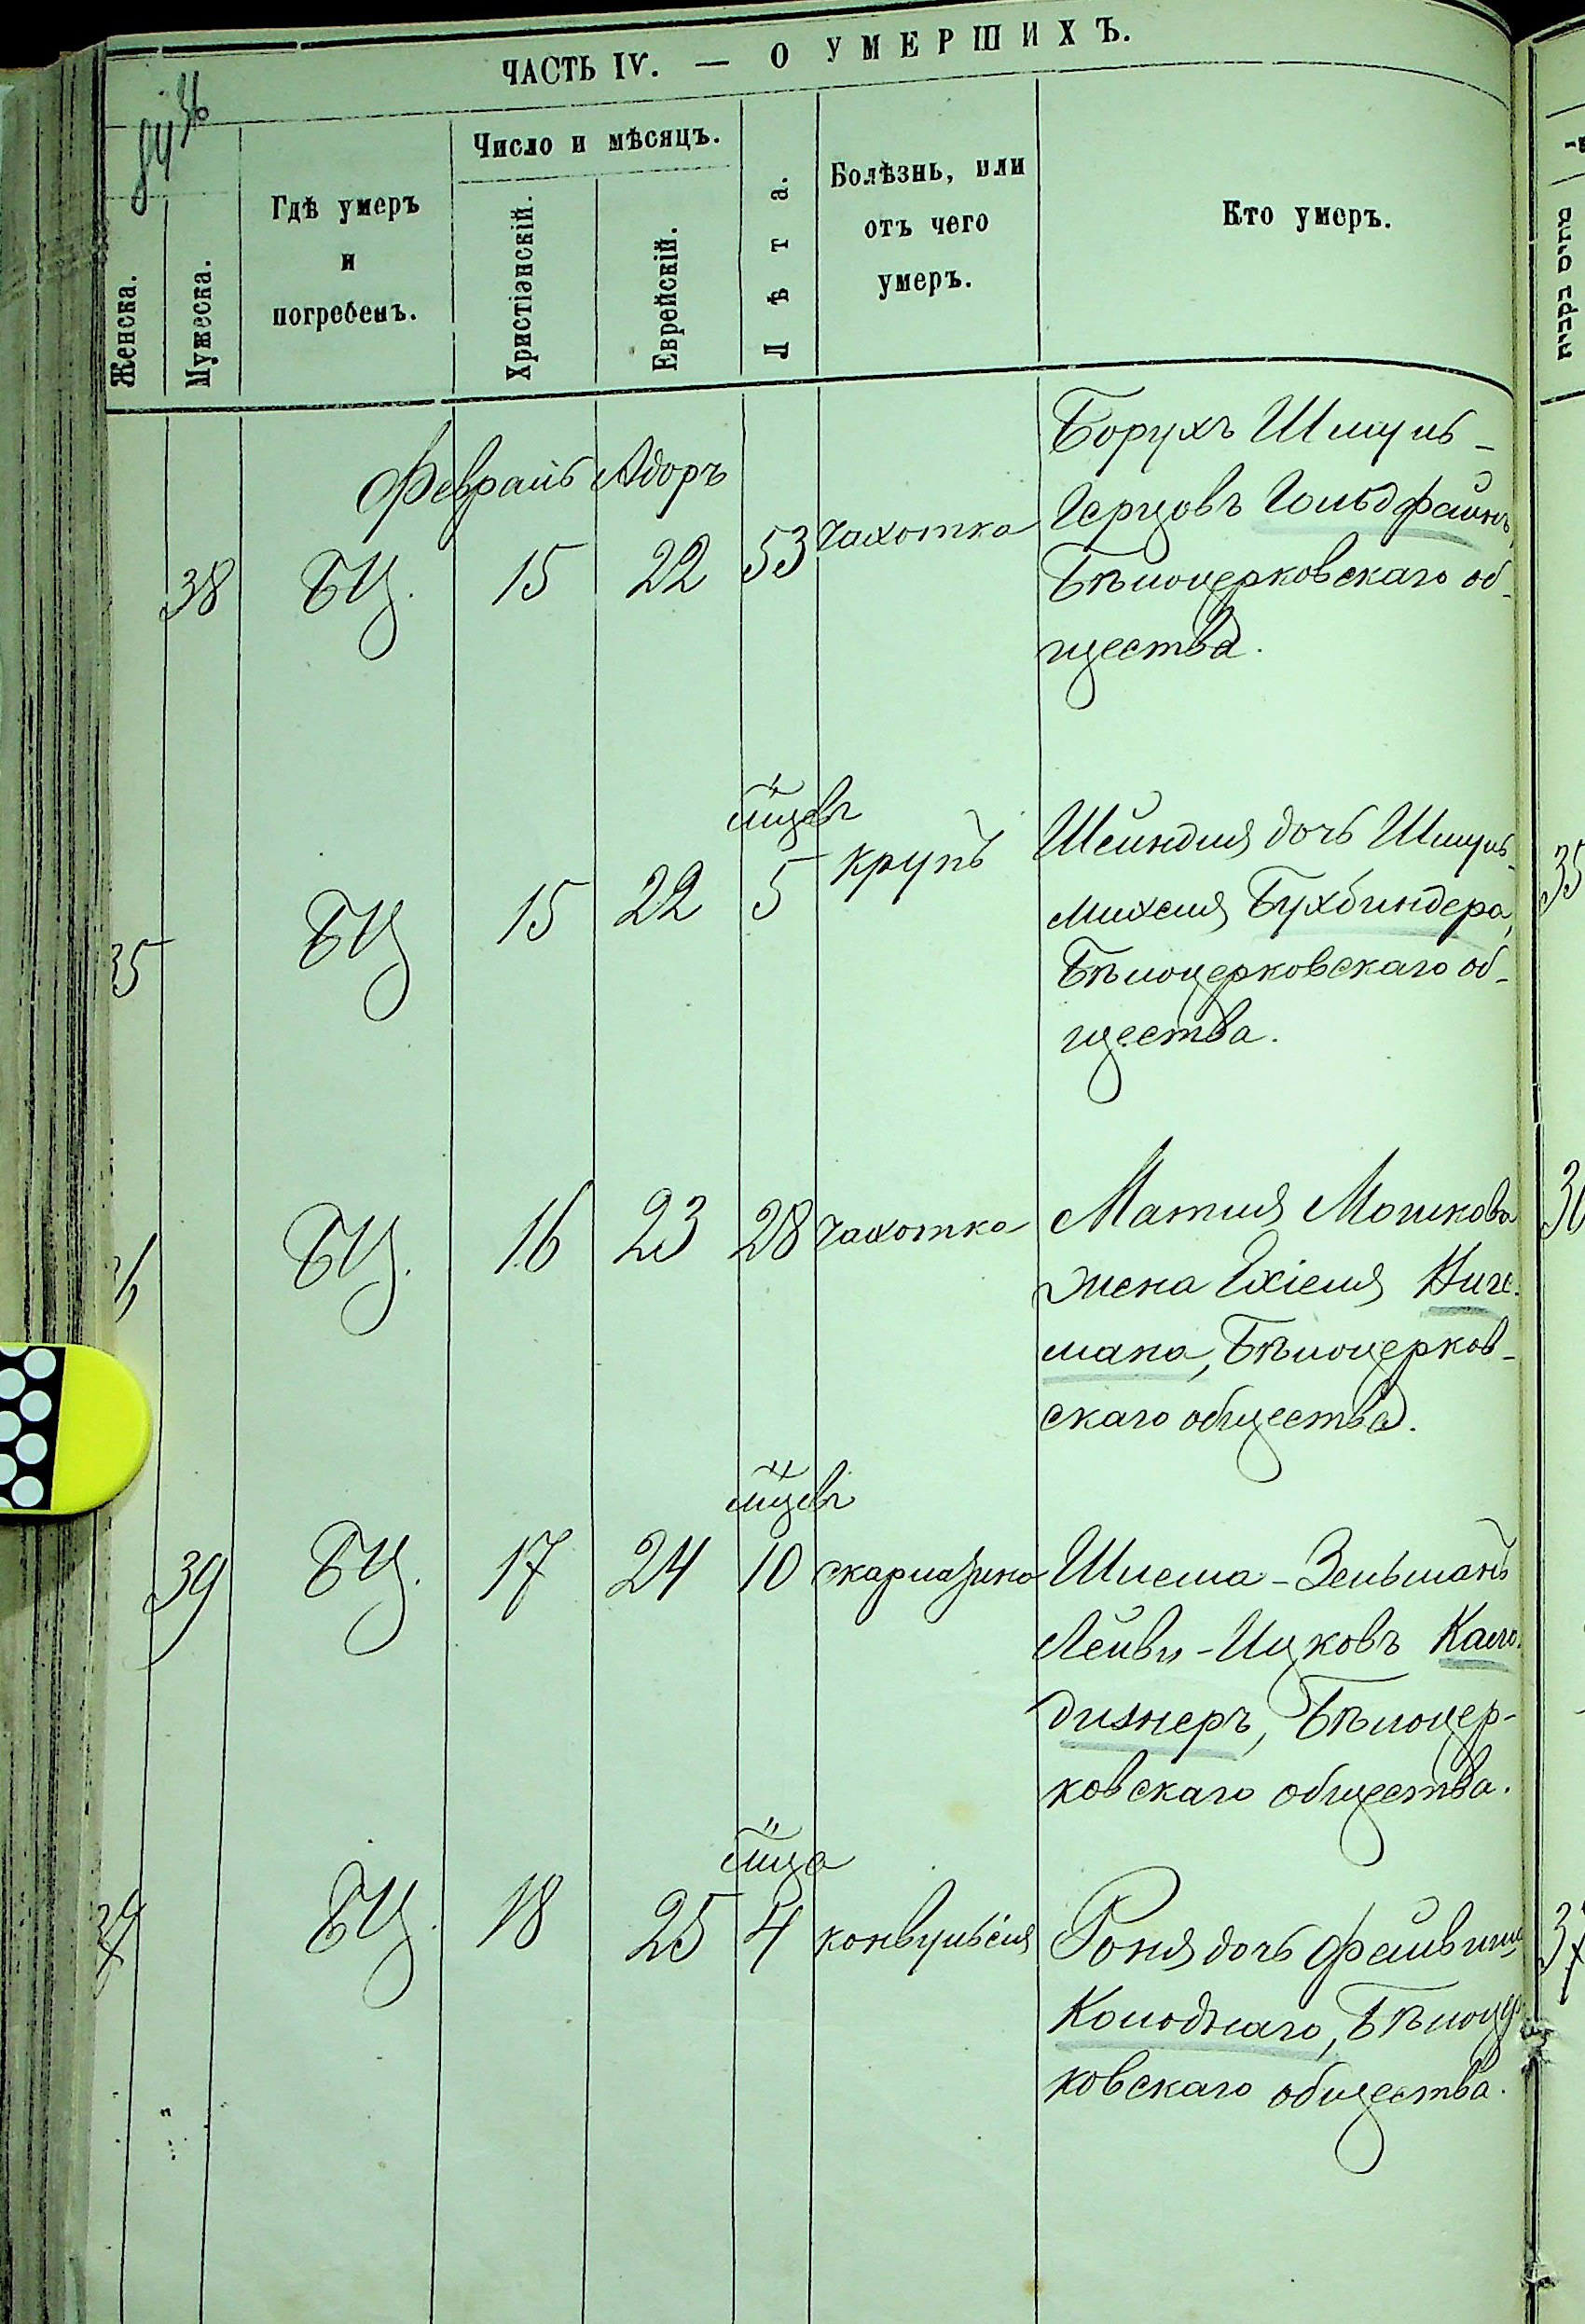 ЧАСТЬ IV. — О УМЕРШИХЪ.
Женска.
Мужеска.
Гдѣ умеръ
и
погребенъ.
Число и мѣсяцъ.
Христіанскій.
Еврейскій.
Лѣта.
Болѣзнь, или
отъ чего
умеръ.
Кто умеръ.
Февраль Адоръ
38 БЦ. 15 22 53 Чахотка
Борухъ Шмуль-
Герцовъ Гольдфайнъ,
Бѣлоцерковскаго об-
щества.
мцевъ
35 БЦ 15 22 5 Крупъ
Шейндля дочь Шмуль-
Михеля Бухбиндера,
Бѣлоцерковскаго об-
щества.
БЦ. 16 23 28 Чахотка
Матля Мошкова
жена Ихіеля
Бѣлоцерков-
скаго общества.
мцевъ
39 БЦ. 17 24 10 скарлатина
Шлема-Зельманъ
Лейви-Ицковъ
Бѣлоцер-
ковскаго общества.
мца
БЦ. 18 25 4 конвульсія
Роня дочь Файвиша
Колоднаго, Бѣлоцер
ковскаго общества.
35
37